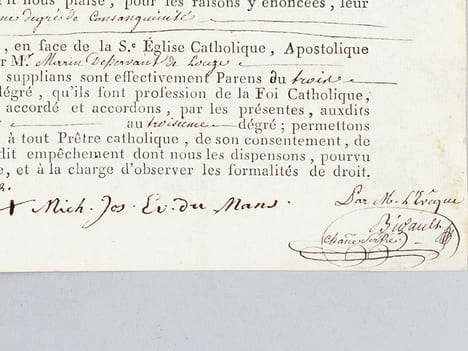 il nous plaise, pour les raisons y énoncées, leur
me degré de Consanguinité
, en face de la S.e Église Catholique, Apostolique
r M.
supplians sont effectivement Parens du trois
dégré, qu'ils font profession de la Foi Catholique,
accordé et accordons, par les présentes, auxdits
au troisieme dégré; permettons
à tout Prêtre catholique, de son consentement, de
dit empêchement dont nous dispensons, pourvu
e, et à la charge d'observer les formalités de droit.
+ Mich. Jos. Ev. du Mans.
Par M. l'Evêque
Bigault